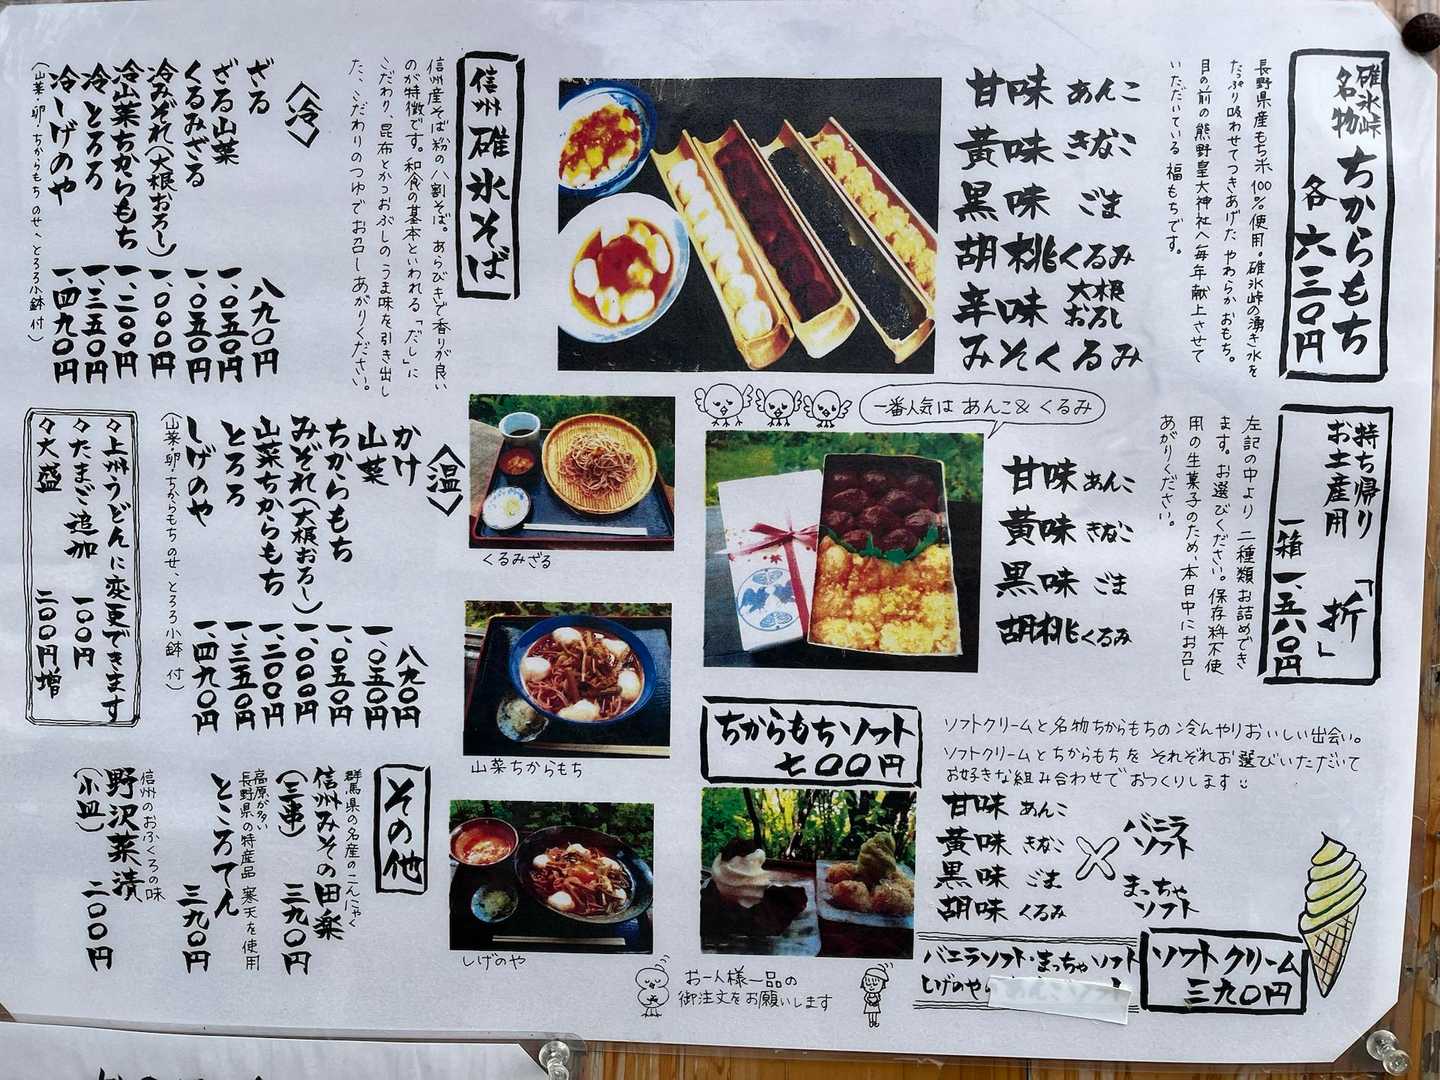 碓氷峠
名物
ちからもち
各六三〇円
長野県産もち米100%使用。碓氷峠の湧き水を
たっぷり吸わせてつきあげたやわらかおもち。
目の前の熊野皇大神社へ毎年献上させて
いただいている福もちです。
甘味 あんこ
黄味 きなこ
黒味 ごま
胡桃 くるみ
辛味 大根おろし
みそくるみ
一番人気は あんこ&くるみ
持ち帰り
お土産用
「折」
一箱 一、五六〇円
左記の中より二種類お詰めでき
ます。お選びください。保存料不使
用の生菓子のため、本日中にお召し
あがりください。
甘味 あんこ
黄味 きなこ
黒味 ごま
胡桃 くるみ
ちからもちソフト
七〇〇円
ソフトクリームと名物ちからもちの冷んやりおいしい出会い。
ソフトクリームとちからもちをそれぞれお選びいただいて
お好きな組み合わせでおつくりします
甘味 あんこ
黄味 きなこ
黒味 ごま
胡味 くるみ
×
バニラ
ソフト
まっちゃ
ソフト
ソフトクリーム
三九〇円
バニラソフト・まっちゃソフト
しげのやの
お一人様一品の
御注文をお願いします
信州碓氷そば
信州産そば粉の八割そば。あらびきで香りが良い
のが特徴です。和食の基本といわれる「だし」に
こだわり、昆布とかつおぶしのうま味を引き出し
た、こだわりのつゆでお召しあがりください。
〈冷〉
ざる 八九〇円
ざる山菜 一、〇五〇円
くるみざる 一、〇五〇円
冷みぞれ(大根おろし) 一、〇〇〇円
冷山菜ちからもち 一、二〇〇円
冷とろろ 一、三五〇円
冷しげのや 一、四九〇円
(山菜・卵・ちからもちのせ、とろろ小鉢付)
くるみざる
山菜ちからもち
しげのや
〈温〉
かけ 八九〇円
山菜 一、〇五〇円
ちからもち 一、〇五〇円
みぞれ(大根おろし) 一、〇〇〇円
山菜ちからもち 一、二〇〇円
とろろ 一、三五〇円
しげのや 一、四九〇円
(山菜・卵・ちからもちのせ、とろろ小鉢付)
々上州うどんに変更できます
々たまご追加 一〇〇円
々大盛 二〇〇円増
その他
群馬県の名産のこんにゃく
信州みその田楽
(三串) 三九〇円
高原が多い
長野県の特産品 寒天を使用
ところてん 三九〇円
信州のおふくろの味
野沢菜漬
(小皿) 二〇〇円